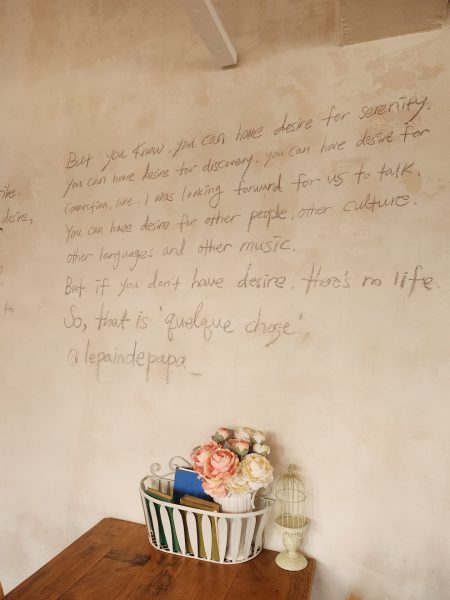 But you know. you can have desire for serenity.
You can have desire for discovery. you can have desire for
connection, like.. I was looking forward for us to talk.
You can have desire for other people, other culture.
other languages and other music.
But if you don't have desire. there's no life.
So, that is 'quelque chose'.
@lepaindepapa_
desire,
to